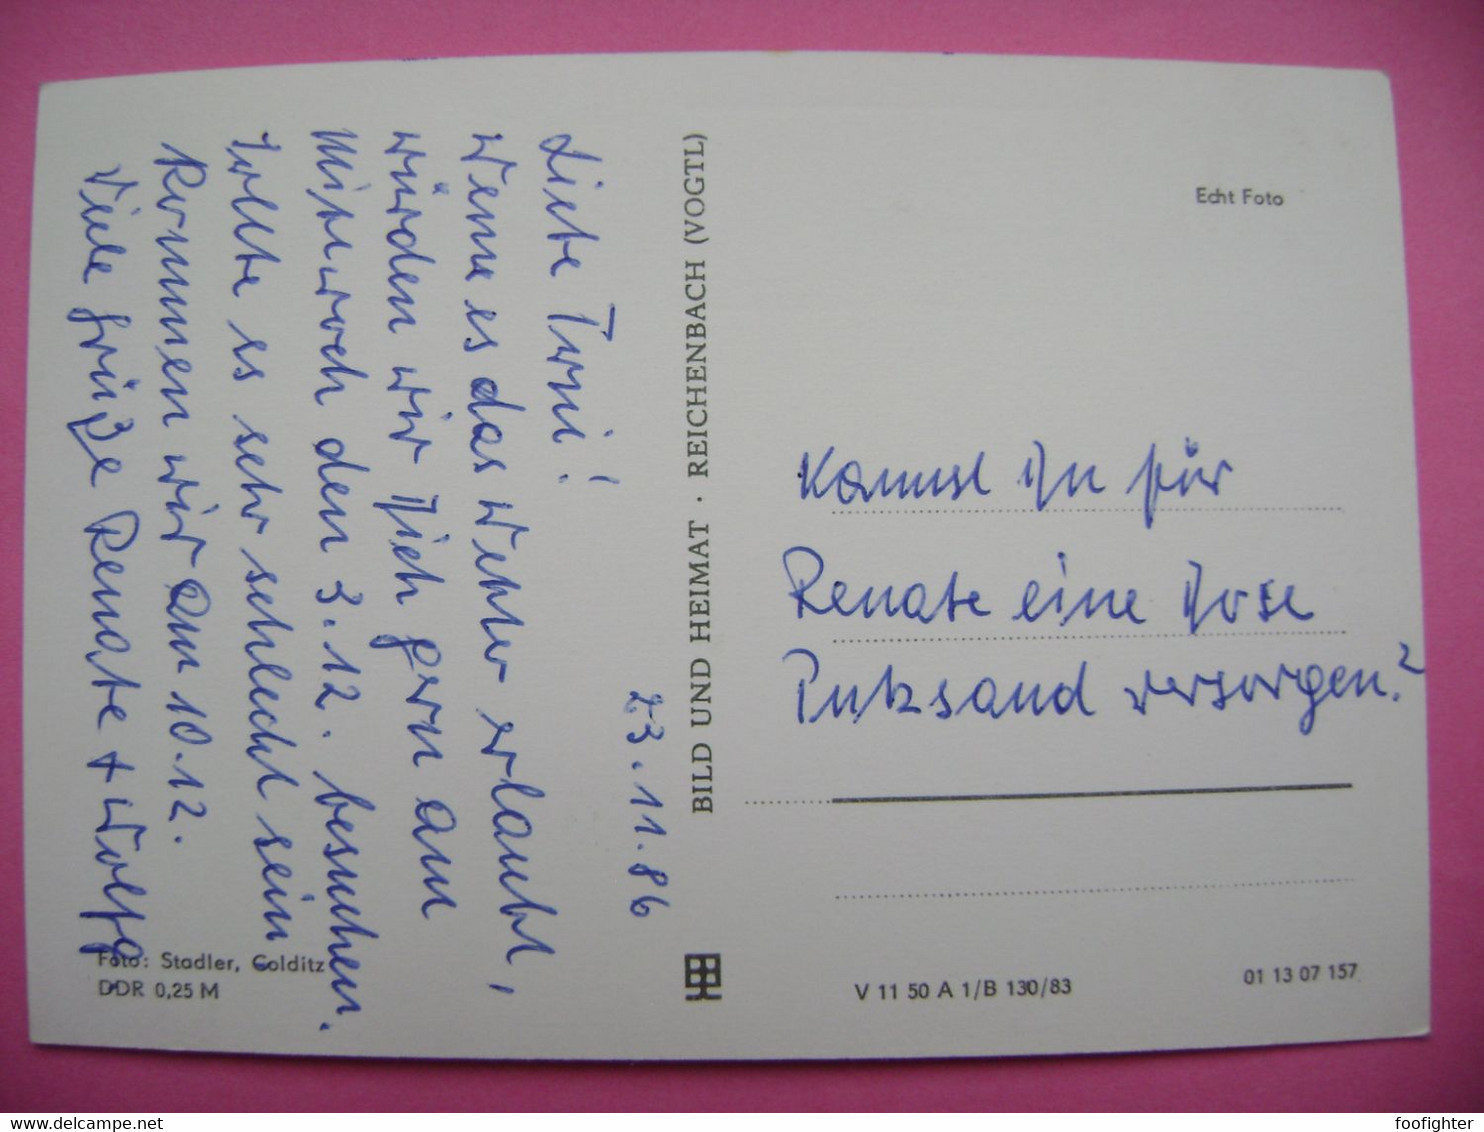 23.11.86
Liebe Turni!
Wenn es das Wetter erlaubt,
würden wir Dich gern am
Mittwoch den 3.12. besuchen.
Sollte es sehr schlecht sein
kommen wir am 10.12.
Viele Grüße Renate + Wolfg.
Foto: Stadler, Colditz
DDR 0,25 M
BILD UND HEIMAT · REICHENBACH (VOGTL)
Echt Foto
Kannst Du für
Renate eine Dose
Putzsand versorgen?
V 11 50 A 1/B 130/83
01 13 07 157
foofighter
www.delcampe.net